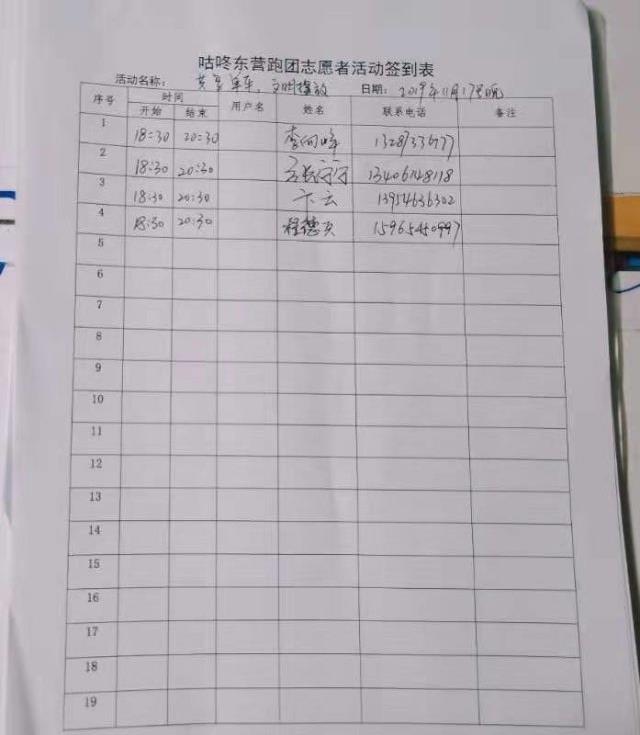 咕咚东营跑团志愿者活动签到表
活动名称： 共享单车，文明摆放 日期：2019年11月17号晚
序号 时间 用户名 姓名 联系电话 备注
开始 结束
1 18:30 20:30 李向峰
2 18:30 20:30 13406148118
3 18:30 20:30 卞云 13954636302
4 18:30 20:30 程德英 15965450997
5
6
7
8
9
10
11
12
13
14
15
16
17
18
19